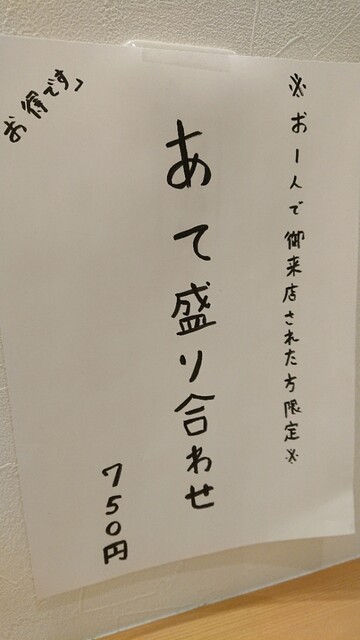 ※お一人で御来店された方限定※
あて盛り合わせ
750円
お得です♪